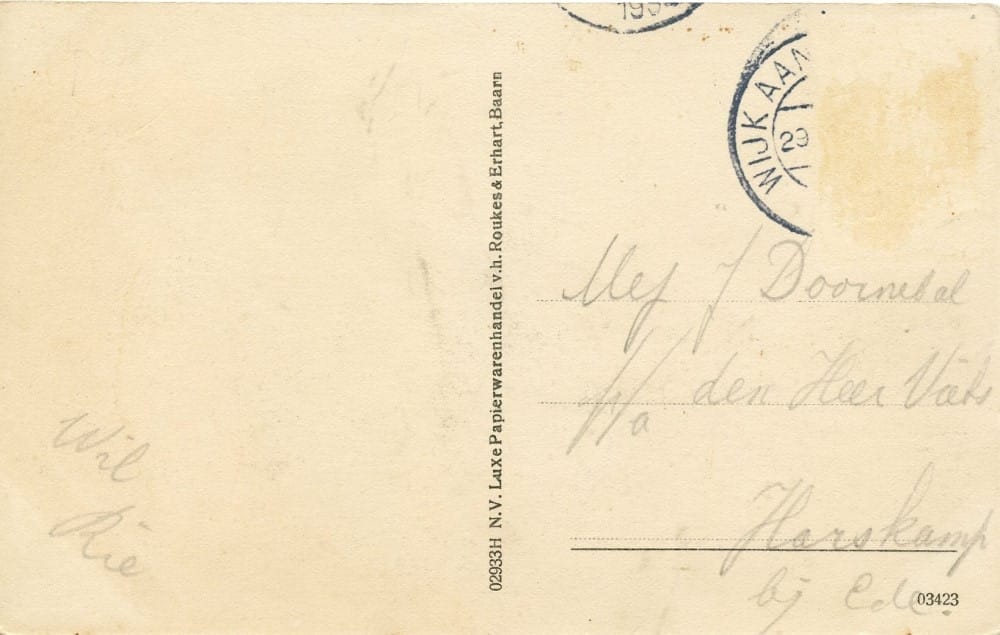 WIJK AAN
29
02933H N.V. Luxe Papierwarenhandel v.h. Roukes & Erhart, Baarn
Mej J Doornebal
p/a den Heer
Harskamp
bij Ede.
Wil
Rie
03423